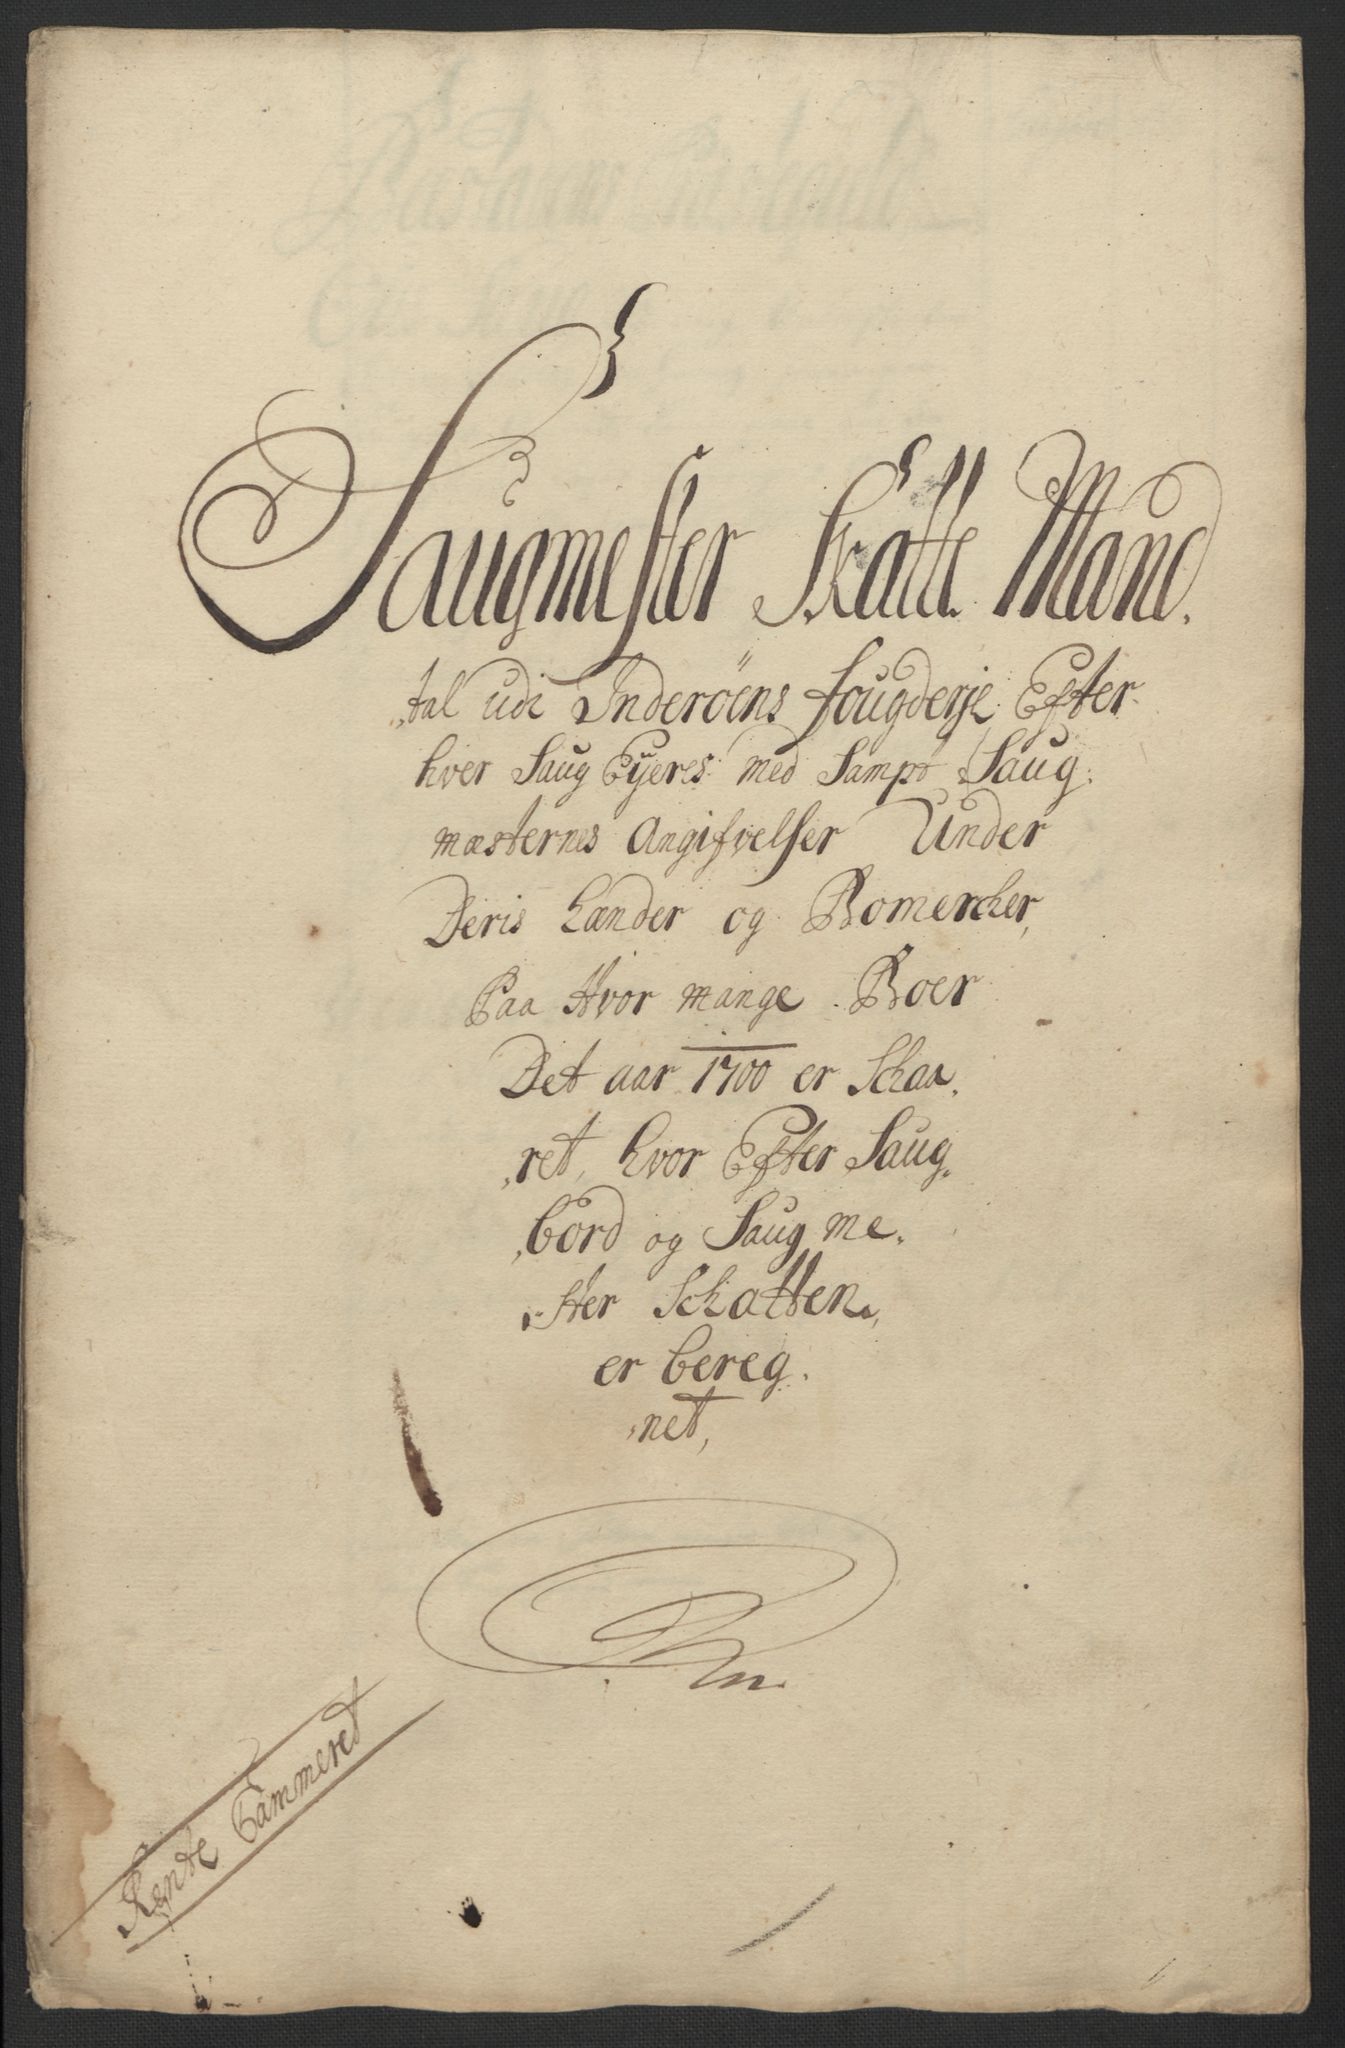 Saugmester Skatte Mand.
,tal udi Inderöens fougderje Efter
hver Saug Eyeres med Sampt Saug.
mæsternes Angifvelser Under
Deris hænder og Bomercher,
Paa Hvor mange Boer
Det aar 1700 er Schaa,
,ret, hvor Efter Saug,
,bord og Saug me,
,ster Schatten,
er bereg.
,net,
Rente Cammeret